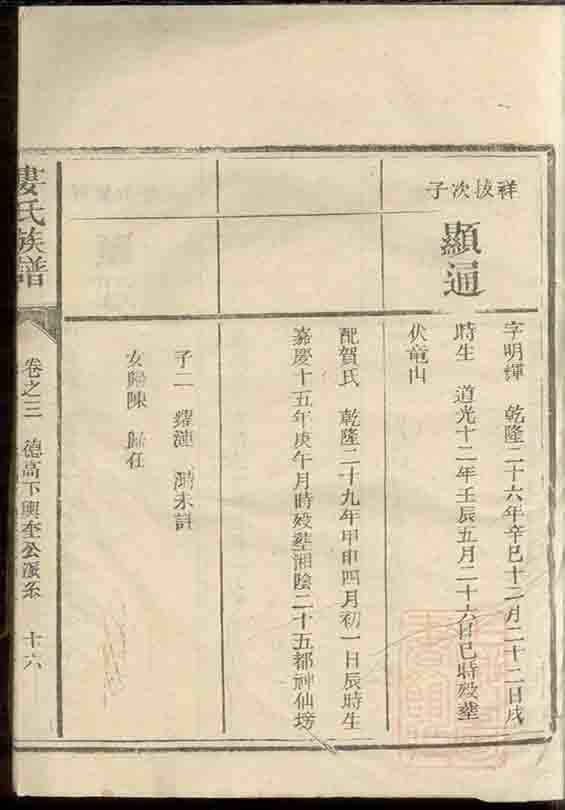 祥拔次子
顯通
字明輝 乾隆二十六年辛巳十二月二十二日戌
時生 道光十二年壬辰五月二十六日巳時殁塟
伏竜山
配賀氏 乾隆二十九年甲申四月初一日辰時生
嘉慶十五年庚午月時殁塟湘陰二十五都神仙塝
子二 耀漣 鴻未詳
女歸陳 歸任
婁氏族譜
卷之三 德高下興奎公派系 十六